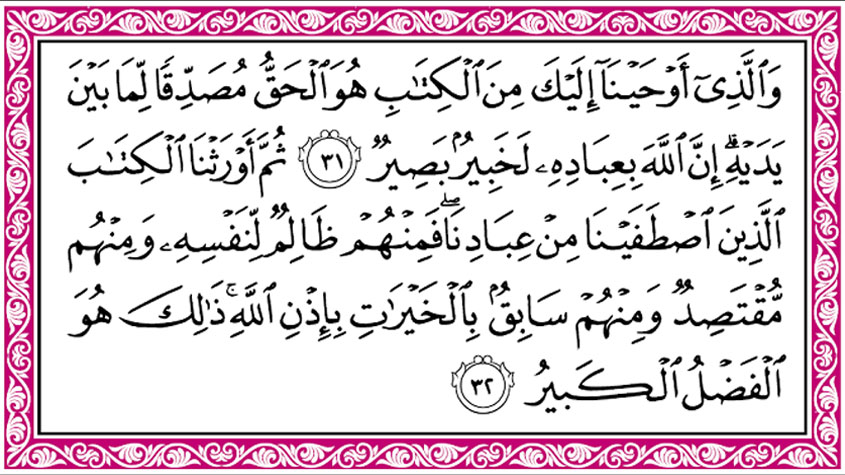 وَٱلَّذِىٓ أَوْحَيْنَآ إِلَيْكَ مِنَ ٱلْكِتَٰبِ هُوَ ٱلْحَقُّ مُصَدِّقًا لِّمَا بَيْنَ
يَدَيْهِ ۗ إِنَّ ٱللَّهَ بِعِبَادِهِۦ لَخَبِيرٌۢ بَصِيرٌ ٣١ ثُمَّ أَوْرَثْنَا ٱلْكِتَٰبَ
ٱلَّذِينَ ٱصْطَفَيْنَا مِنْ عِبَادِنَا ۖ فَمِنْهُمْ ظَالِمٌ لِّنَفْسِهِۦ وَمِنْهُم
مُّقْتَصِدٌ وَمِنْهُمْ سَابِقٌۢ بِٱلْخَيْرَٰتِ بِإِذْنِ ٱللَّهِ ۚ ذَٰلِكَ هُوَ
ٱلْفَضْلُ ٱلْكَبِيرُ ٣٢